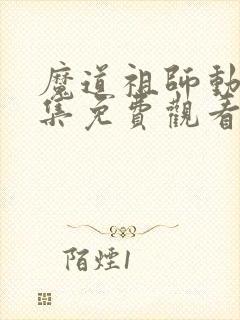 魔道祖師動
集免費觀看
陌煙1